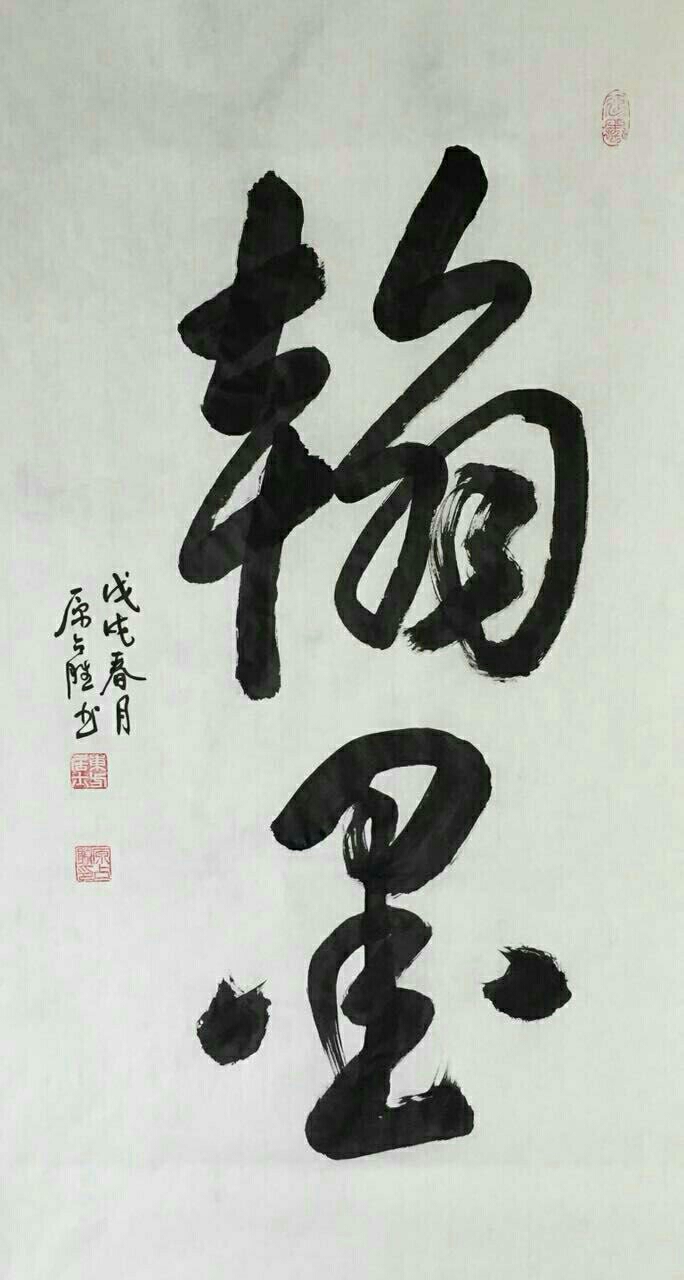 翰墨
戊戌春月
原占胜书